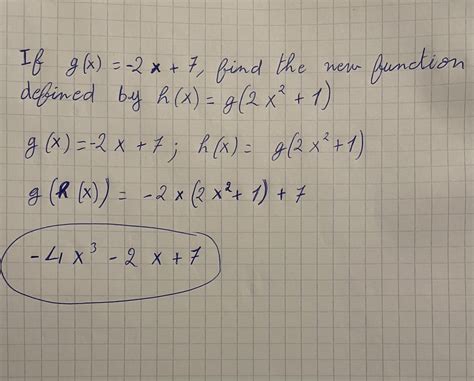 If g(x) = -2x + 7, find the new function
defined by h(x) = g(2x² + 1)
g(x) = -2x + 7; h(x) = g(2x² + 1)
g(h(x)) = -2x(2x² + 1) + 7
-4x³ - 2x + 7